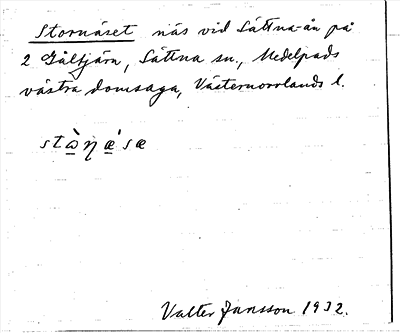 Stornäset näs vid Sättna-ån på
2 Gåltjärn, Sättna sn, Medelpads
västra domsaga, Västernorrlands l.
Valter Jansson 1932.